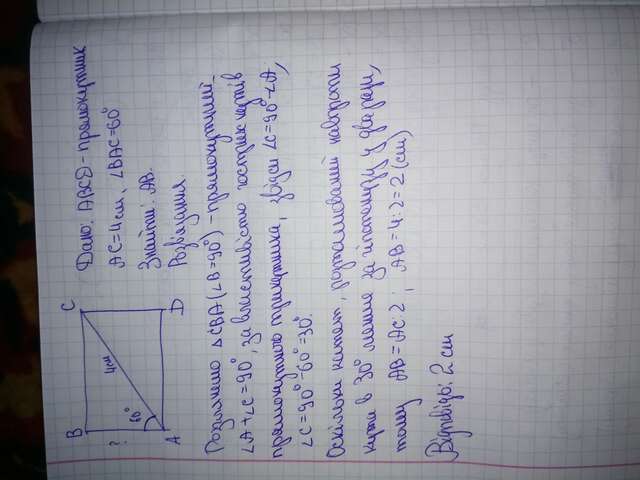 B
C
?
4см
60°
A
D
Дано: ABCD - прямокутник
AC=4см, ∠BAC=60°
Знайти: AB.
Розв'язання.
Розглянемо △CBA (∠B=90°) - прямокутний.
∠A+∠C=90°, за властивістю гострих кутів
прямокутного трикутника, звідси ∠C=90°-∠A,
∠C=90°-60°=30°.
Оскільки катет, розташований навпроти
кута в 30° менше за гіпотенузу у два рази,
тому AB=AC:2; AB=4:2=2(см)
Відповідь: 2 см